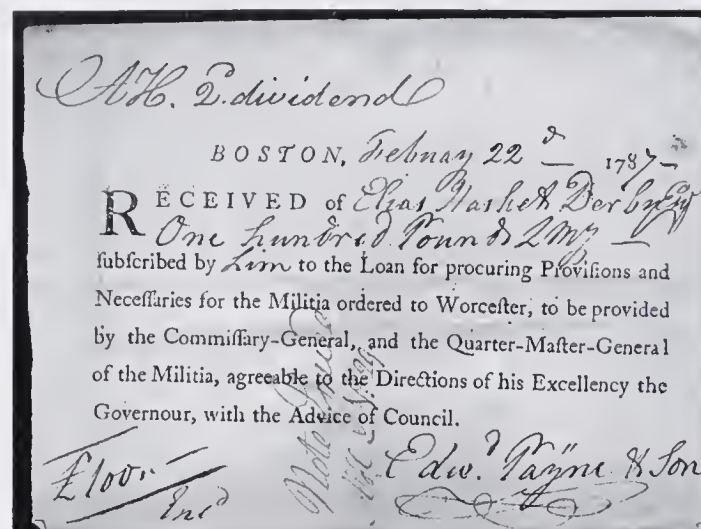 AH. 2. dividend
BOSTON, Febuay 22d — 1787 —
RECEIVED of Elias Hasket Derby Esqr
One hundred Pounds L Mỹ —
ſubſcribed by him to the Loan for procuring Proviſions and
Neceſſaries for the Militia ordered to Worceſter, to be provided
by the Commiſſary-General, and the Quarter-Maſter-General
of the Militia, agreeable to the Directions of his Excellency the
Governour, with the Advice of Council.
£100.
Edwd. Payne & Son
Note